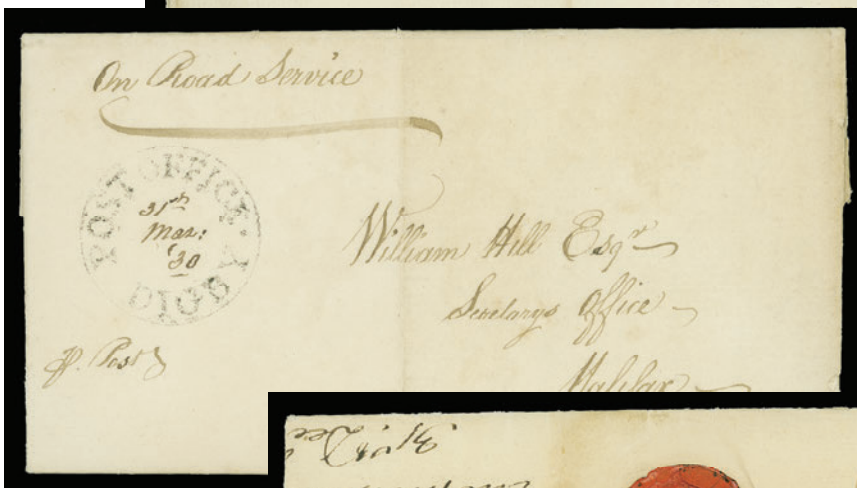 On Road Service
POST OFFICE
31st
Mar:
'30
DIGBY
William Hill Esqr
Secretarys Office
Halifax
P. Post